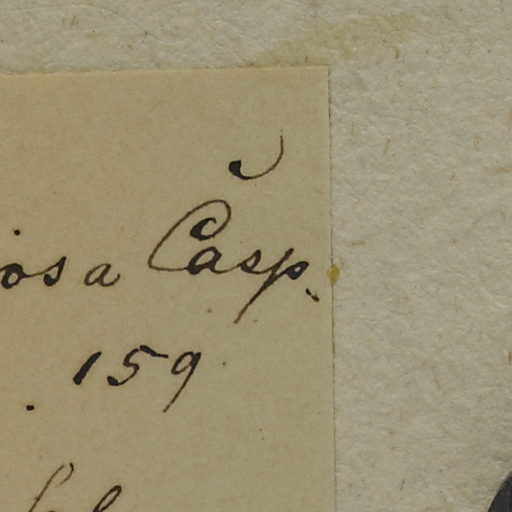 iosa Casp.
. 159